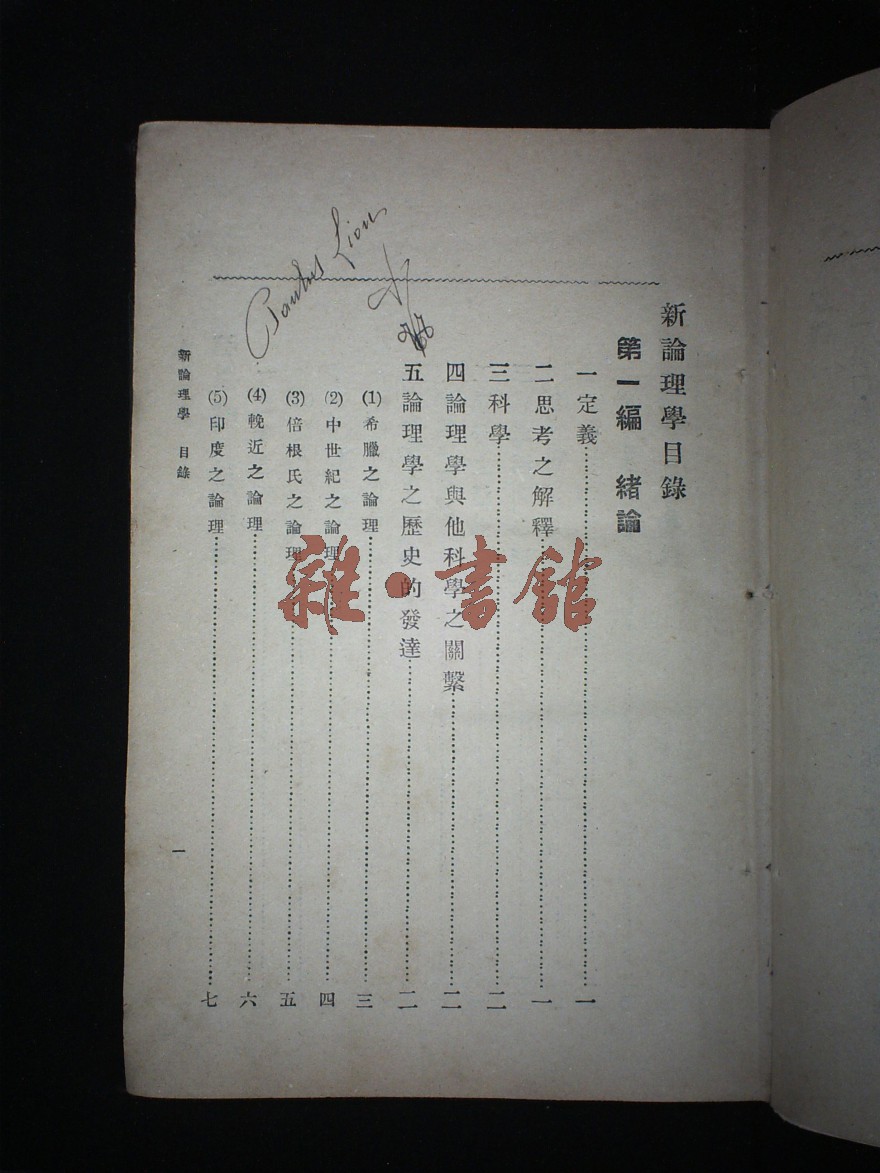 新論理學目錄
第一編 緒論
一定義……一
二思考之解釋……一
三科學……二
四論理學與他科學之關繫……二
五論理學之歷史的發達……二
(1)希臘之論理……三
(2)中世紀之論理……四
(3)倍根氏之論理……五
(4)輓近之論理……六
(5)印度之論理……七
新論理學 目錄
一
Paulus Liou
雜·書館